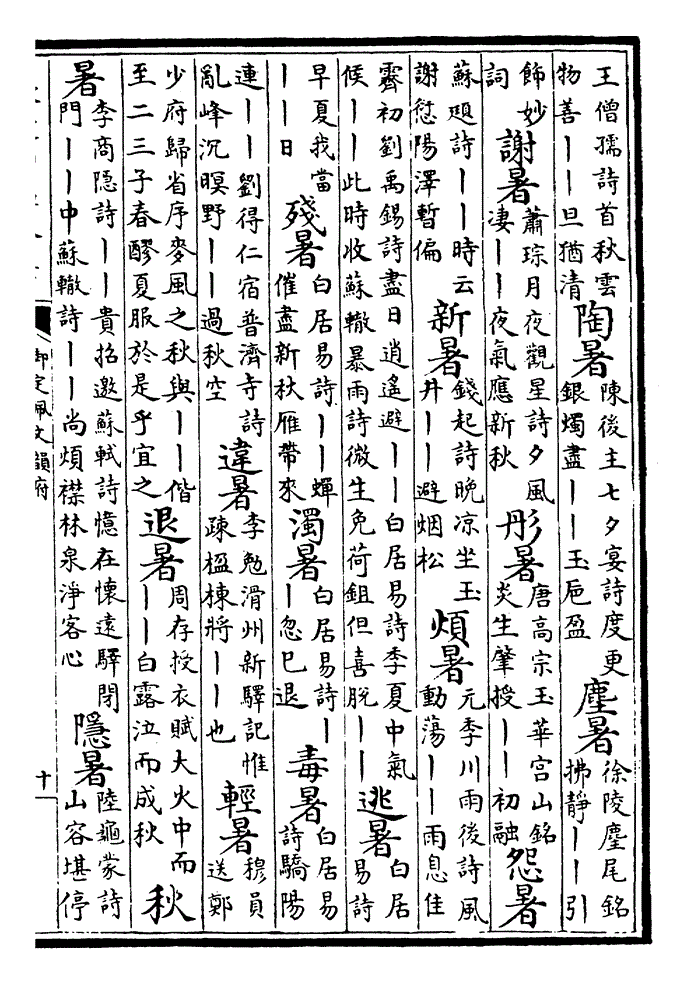 王僧孺詩首秋雲物善||旦猶清陶暑陳後主七夕宴詩度更銀燭盡||玉巵盈塵暑徐陵塵尾銘拂靜||引
飾妙詞謝暑蕭琮月夜觀星詩夕風凄||夜氣應新秋彤暑唐高宗玉華宮山銘炎生肇授||初融怨暑
蘇頲詩||時云謝愆陽澤暫偏新暑錢起詩晚凉坐玉井||避烟松煩暑元季川雨後詩風動蕩||雨息佳
霽初劉禹錫詩盡日逍遙避||白居易詩季夏中氣候||此時收蘇轍暴雨詩微生免荷鉏但喜脫||逃暑白居易詩
早夏我當||日殘暑白居易詩||蟬催盡新秋雁帶來濁暑白居易詩||忽已退毒暑白居易詩驕陽
連||劉得仁宿普濟寺詩亂峰沉暝野||過秋空違暑李勉滑州新驛記惟疎楹棟將||也輕暑穆員送鄭
少府歸省序麥風之秋與||偕至二三子春醪夏服於是乎宜之退暑周存授衣賦大火中而||白露泣而成秋秋
暑李商隱詩||貴招邀蘇軾詩憶在懷遠驛閉門||中蘇轍詩||尚煩襟林泉淨客心隱暑陸龜蒙詩山容堪停
御定佩文韻府
十